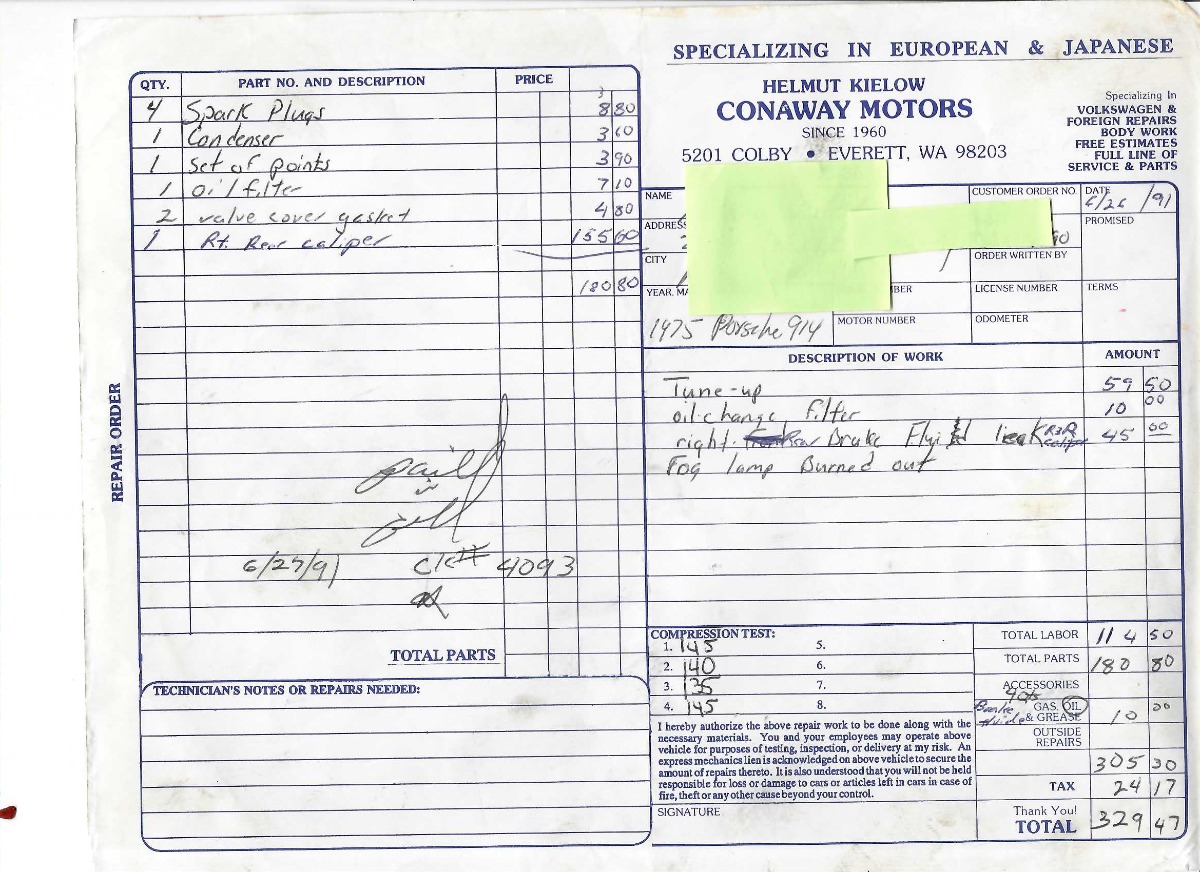 SPECIALIZING IN EUROPEAN & JAPANESE
HELMUT KIELOW
CONAWAY MOTORS
SINCE 1960
5201 COLBY • EVERETT, WA 98203
Specializing In
VOLKSWAGEN &
FOREIGN REPAIRS
BODY WORK
FREE ESTIMATES
FULL LINE OF
SERVICE & PARTS
REPAIR ORDER
QTY. PART NO. AND DESCRIPTION PRICE
4 Spark Plugs 8 80
1 Condenser 3 60
1 Set of points 3 90
1 oil filter 7 10
2 valve cover gasket 4 80
1 Rt. Rear caliper 155 60
180 80
paid
6/27/91 CK# 4093
TOTAL PARTS
TECHNICIAN'S NOTES OR REPAIRS NEEDED:
NAME CUSTOMER ORDER NO. DATE
6/26/91
ADDRESS PROMISED
CITY ORDER WRITTEN BY
YEAR, MA BER LICENSE NUMBER TERMS
1975 Porsche 914 MOTOR NUMBER ODOMETER
DESCRIPTION OF WORK AMOUNT
Tune-up 59 50
oil change filter 10 00
right Rear Brake leak R&R caliper 45 00
Fog lamp Burned out
COMPRESSION TEST:
1. 145 5.
2. 140 6.
3. 135 7.
4. 145 8.
I hereby authorize the above repair work to be done along with the
necessary materials. You and your employees may operate above
vehicle for purposes of testing, inspection, or delivery at my risk. An
express mechanics lien is acknowledged on above vehicle to secure the
amount of repairs thereto. It is also understood that you will not be held
responsible for loss or damage to cars or articles left in cars in case of
fire, theft or any other cause beyond your control.
SIGNATURE
TOTAL LABOR 114 50
TOTAL PARTS 180 80
ACCESSORIES
GAS, OIL
& GREASE 10 00
OUTSIDE
REPAIRS
305 30
TAX 24 17
Thank You!
TOTAL 329 47